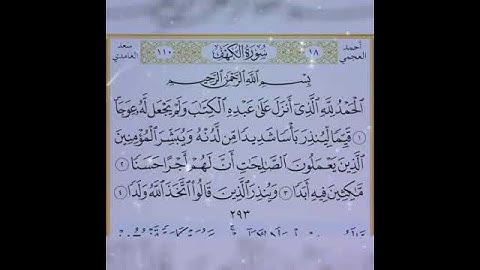 سعد الغامدي
١١٠
سُورَةُ الكَهْفِ
١٨
أحمد العجمي
بِسْمِ اللَّهِ الرَّحْمَٰنِ الرَّحِيمِ
الْحَمْدُ لِلَّهِ الَّذِي أَنزَلَ عَلَىٰ عَبْدِهِ الْكِتَابَ وَلَمْ يَجْعَل لَّهُ عِوَجًا
١ قَيِّمًا لِّيُنذِرَ بَأْسًا شَدِيدًا مِّن لَّدُنْهُ وَيُبَشِّرَ الْمُؤْمِنِينَ
الَّذِينَ يَعْمَلُونَ الصَّالِحَاتِ أَنَّ لَهُمْ أَجْرًا حَسَنًا ٢
مَّاكِثِينَ فِيهِ أَبَدًا ٣ وَيُنذِرَ الَّذِينَ قَالُوا اتَّخَذَ اللَّهُ وَلَدًا ٤
٢٩٣